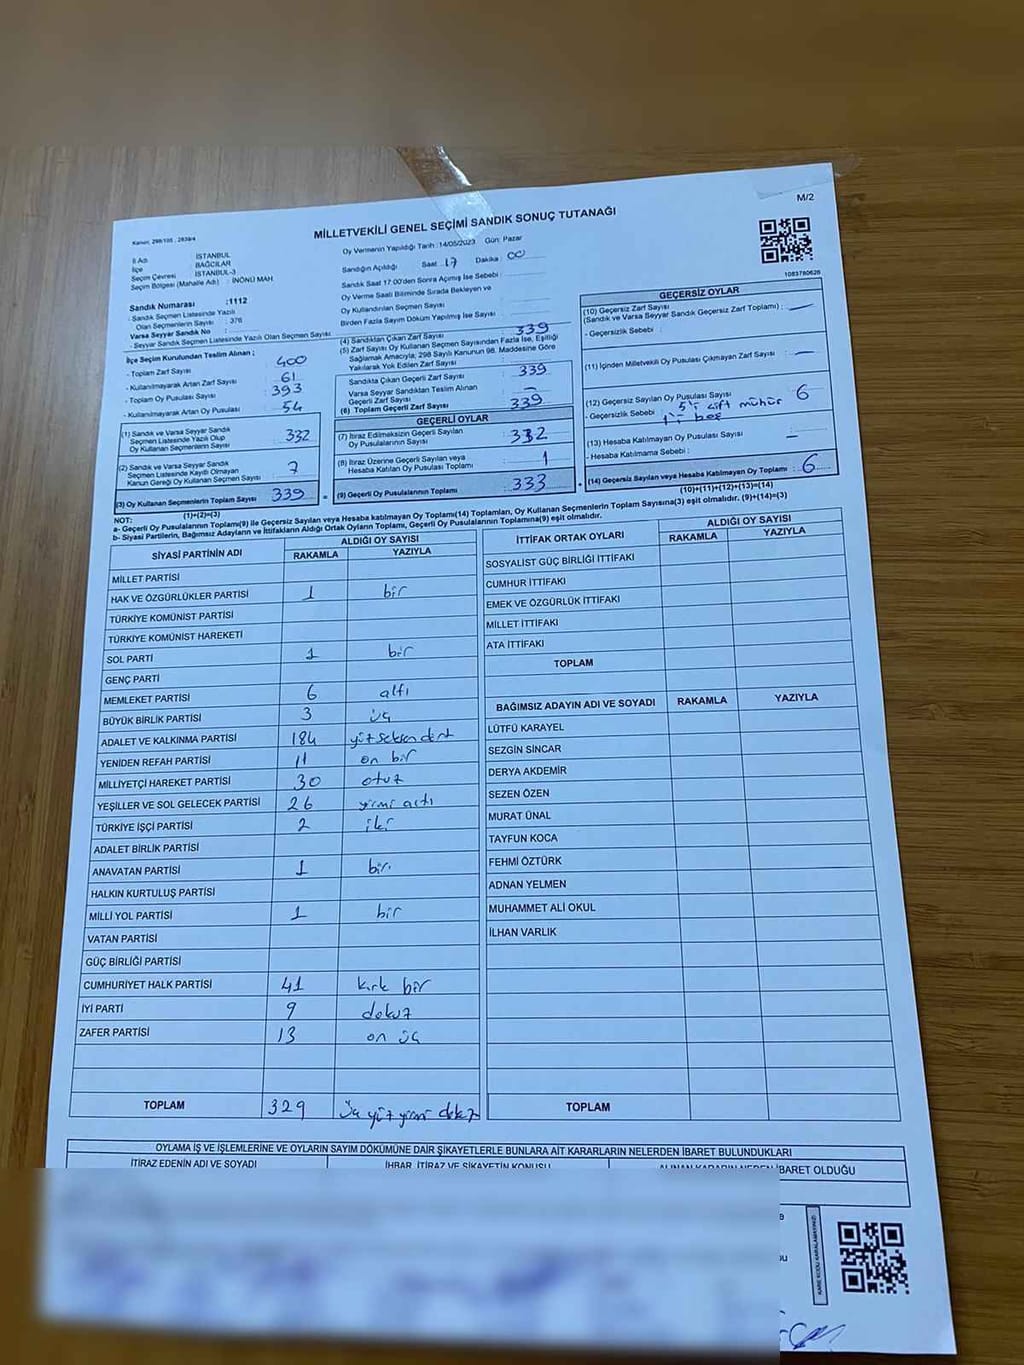 M/2
Kanun: 298/105 , 2839/4
MİLLETVEKİLİ GENEL SEÇİMİ SANDIK SONUÇ TUTANAĞI
İl Adı : İSTANBUL
İlçe : BAĞCILAR
Seçim Çevresi : İSTANBUL-3
Seçim Bölgesi (Mahalle Adı) : İNÖNÜ MAH
Sandık Numarası :1112
- Sandık Seçmen Listesinde Yazılı
Olan Seçmenlerin Sayısı : 376
Varsa Seyyar Sandık No :
- Seyyar Sandık Seçmen Listesinde Yazılı Olan Seçmen Sayısı
İlçe Seçim Kurulundan Teslim Alınan ;
- Toplam Zarf Sayısı : 400
- Kullanılmayarak Artan Zarf Sayısı : 61
- Toplam Oy Pusulası Sayısı : 393
- Kullanılmayarak Artan Oy Pusulası : 54
(1) Sandık ve Varsa Seyyar Sandık
Seçmen Listesinde Yazılı Olup
Oy Kullanan Seçmenlerin Sayısı : 332
(2) Sandık ve Varsa Seyyar Sandık
Seçmen Listesinde Kayıtlı Olmayan
Kanun Gereği Oy Kullanan Seçmen Sayısı : 7
(3) Oy Kullanan Seçmenlerin Toplam Sayısı : 339
(1)+(2)=(3)
Oy Vermenin Yapıldığı Tarih :14/05/2023 Gün: Pazar
Sandığın Açıldığı Saat : 17 Dakika : 00
Sandık Saat 17:00'den Sonra Açılmış İse Sebebi :
Oy Verme Saati Bitiminde Sırada Bekleyen ve
Oy Kullandırılan Seçmen Sayısı :
Birden Fazla Sayım Döküm Yapılmış İse Sayısı :
(4) Sandıktan Çıkan Zarf Sayısı : 339
(5) Zarf Sayısı Oy Kullanan Seçmen Sayısından Fazla İse, Eşitliği
Sağlamak Amacıyla; 298 Sayılı Kanunun 98. Maddesine Göre
Yakılarak Yok Edilen Zarf Sayısı :
Sandıkta Çıkan Geçerli Zarf Sayısı : 339
Varsa Seyyar Sandıktan Teslim Alınan
Geçerli Zarf Sayısı : -
(6) Toplam Geçerli Zarf Sayısı : 339
GEÇERLİ OYLAR
(7) İtiraz Edilmeksizin Geçerli Sayılan
Oy Pusulalarının Sayısı : 332
(8) İtiraz Üzerine Geçerli Sayılan veya
Hesaba Katılan Oy Pusulası Toplamı : 1
(9) Geçerli Oy Pusulalarının Toplamı : 333
1083780626
GEÇERSİZ OYLAR
(10) Geçersiz Zarf Sayısı
(Sandık ve Varsa Seyyar Sandık Geçersiz Zarf Toplamı) : -
- Geçersizlik Sebebi :
(11) İçinden Milletvekili Oy Pusulası Çıkmayan Zarf Sayısı : -
(12) Geçersiz Sayılan Oy Pusulası Sayısı : 6
- Geçersizlik Sebebi : 5'i çift mühür
1'i boş
(13) Hesaba Katılmayan Oy Pusulası Sayısı : -
- Hesaba Katılmama Sebebi :
(14) Geçersiz Sayılan veya Hesaba Katılmayan Oy Toplamı : 6
(10)+(11)+(12)+(13)=(14)
NOT:
a- Geçerli Oy Pusulalarının Toplamı(9) ile Geçersiz Sayılan veya Hesaba katılmayan Oy Toplamı(14) Toplamları, Oy Kullanan Seçmenlerin Toplam Sayısına(3) eşit olmalıdır. (9)+(14)=(3)
b- Siyasi Partilerin, Bağımsız Adayların ve İttifakların Aldığı Ortak Oyların Toplamı, Geçerli Oy Pusulalarının Toplamına(9) eşit olmalıdır.
SİYASİ PARTİNİN ADI
ALDIĞI OY SAYISI
RAKAMLA YAZIYLA
MİLLET PARTİSİ
HAK VE ÖZGÜRLÜKLER PARTİSİ 1 bir
TÜRKİYE KOMÜNİST PARTİSİ
TÜRKİYE KOMÜNİST HAREKETİ
SOL PARTİ 1 bir
GENÇ PARTİ
MEMLEKET PARTİSİ 6 altı
BÜYÜK BİRLİK PARTİSİ 3 üç
ADALET VE KALKINMA PARTİSİ 184 yüzseksen dört
YENİDEN REFAH PARTİSİ 11 on bir
MİLLİYETÇİ HAREKET PARTİSİ 30 otuz
YEŞİLLER VE SOL GELECEK PARTİSİ 26 yirmi altı
TÜRKİYE İŞÇİ PARTİSİ 2 iki
ADALET BİRLİK PARTİSİ
ANAVATAN PARTİSİ 1 bir
HALKIN KURTULUŞ PARTİSİ
MİLLİ YOL PARTİSİ 1 bir
VATAN PARTİSİ
GÜÇ BİRLİĞİ PARTİSİ
CUMHURİYET HALK PARTİSİ 41 kırk bir
İYİ PARTİ 9 dokuz
ZAFER PARTİSİ 13 on üç
TOPLAM 329 üç yüz yirmi dokuz
İTTİFAK ORTAK OYLARI
ALDIĞI OY SAYISI
RAKAMLA YAZIYLA
SOSYALİST GÜÇ BİRLİĞİ İTTİFAKI
CUMHUR İTTİFAKI
EMEK VE ÖZGÜRLÜK İTTİFAKI
MİLLET İTTİFAKI
ATA İTTİFAKI
TOPLAM
BAĞIMSIZ ADAYIN ADI VE SOYADI RAKAMLA YAZIYLA
LÜTFÜ KARAYEL
SEZGİN SİNCAR
DERYA AKDEMİR
SEZEN ÖZEN
MURAT ÜNAL
TAYFUN KOCA
FEHMİ ÖZTÜRK
ADNAN YELMEN
MUHAMMET ALİ OKUL
İLHAN VARLIK
TOPLAM
OYLAMA İŞ VE İŞLEMLERİNE VE OYLARIN SAYIM DÖKÜMÜNE DAİR ŞİKAYETLERLE BUNLARA AİT KARARLARIN NELERDEN İBARET BULUNDUKLARI
İTİRAZ EDENİN ADI VE SOYADI
İHBAR, İTİRAZ VE ŞİKAYETİN KONUSU
ALINAN KARARIN NEDEN İBARET OLDUĞU
KARE KODU KARALAMAYINIZ!